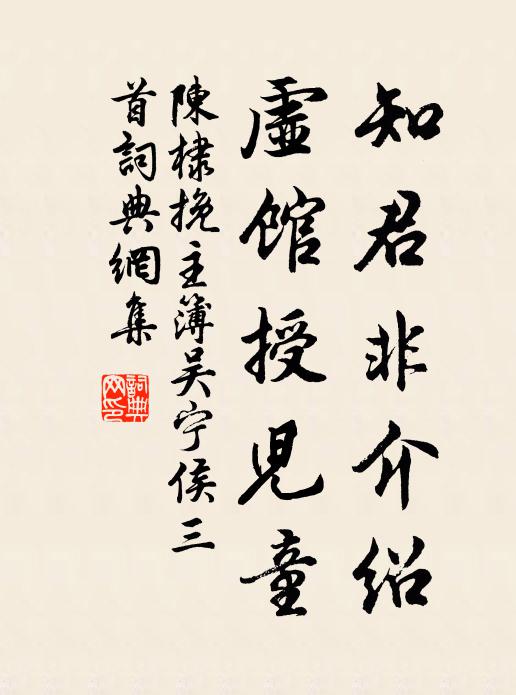 知君非介紹
虛館授兒童
陳棣挽主簿吴宁侯三
首詞典網集
詞典
网印